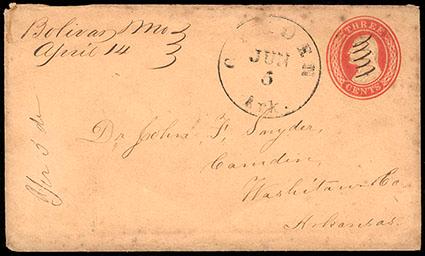 Bolivar Mo
April 14
CAMDEN
JUN
5
Ark.
THREE
CENTS
Dr John F. Snyder,
Camden,
Washitaw Co
Arkansas.